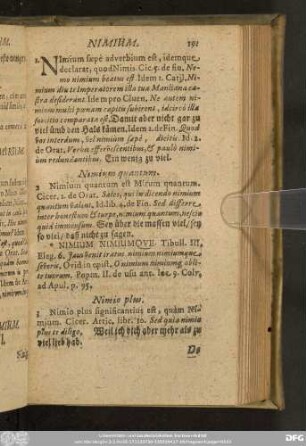 NIMIRM. 191
2. NImium sæpè adverbium est, idemque
declarat, quod Nimis. Cic. 5. de fin. Ne-
mo nimium beatus est. Idem 1. Catil. Ni-
mium diu te Imperatorem illa tua Manliana ca-
stra desiderant. Idem pro Cluen. Ne autem ni-
mium multi pœnam capitis subirent, idcirco illa
sortitio comparata est. Damit aber nicht gar zu
viel umb den Hals kämen. Idem 2. de Fin. Quod
vos interdum, vel nimium sæpè, dicitis. Id. 2.
de Orat. Verbis effervescentibus, & paulò nimi-
um redundantibus. Ein wenig zu viel.
Nimium quantum.
3 Nimium quantum est Mirum quantum.
Cicer. 2. de Orat. Sales, qui in dicendo nimium
quantum valent. Id. lib. 4. de Fin. Sed differt
inter honestum & turpe, nimium quantum, nescio
quid immensum. Gey über die massen viel, sey
so viel, daß nicht zu sagen.
* NIMIUM NIMIUMQVE Tibull. III,
Eleg. 6. Jam venit iratus nimium nimiumque
severus. Ovid in epist. O nimium nimiumq; obli-
te tuorum. Popm. II. de usu ant. loc. 9. Colr,
ad Apul. p. 95.
Nimio plus.
1 Nimio plus significantiùs est, quàm Ni-
mium. Cicer. Attic, libr. 10. Sed quia nimio
plus te diligo, Weil ich dich aber mehr als zu
viel lieb hab.